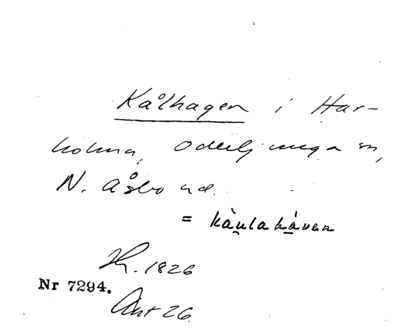 Kålhagen i Har-
holma, Oderljunga sn,
N. Åsbo hd.
= kàulahávan
K. 1826
Nr 7294.
Ant 26